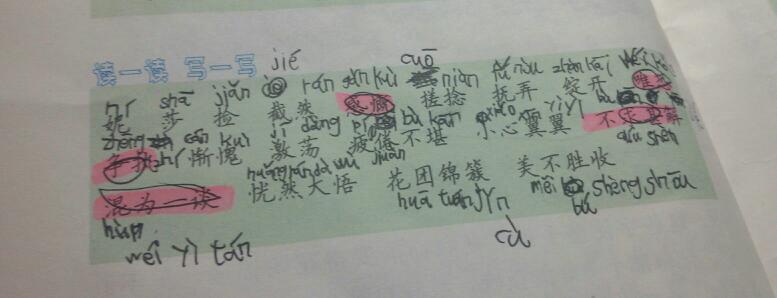 jié cuō
读一读 写一写
nī shā jiǎn rán kù niǎn fǔ nòu zhàn kāi
妮 莎 捡 截然 感慨 搓捻 抚弄 绽开
zhēng cán kuì jī dàng bù kān yì yì
争执 惭愧 激荡 疲倦不堪 小心翼翼 不求甚解
zhí juàn qiú shèn
huǎng rán dà wù
恍然大悟 花团锦簇 美不胜收
huā tuán jǐn měi shèng shōu
混为一谈 cù bù
hùn
wéi yì tán